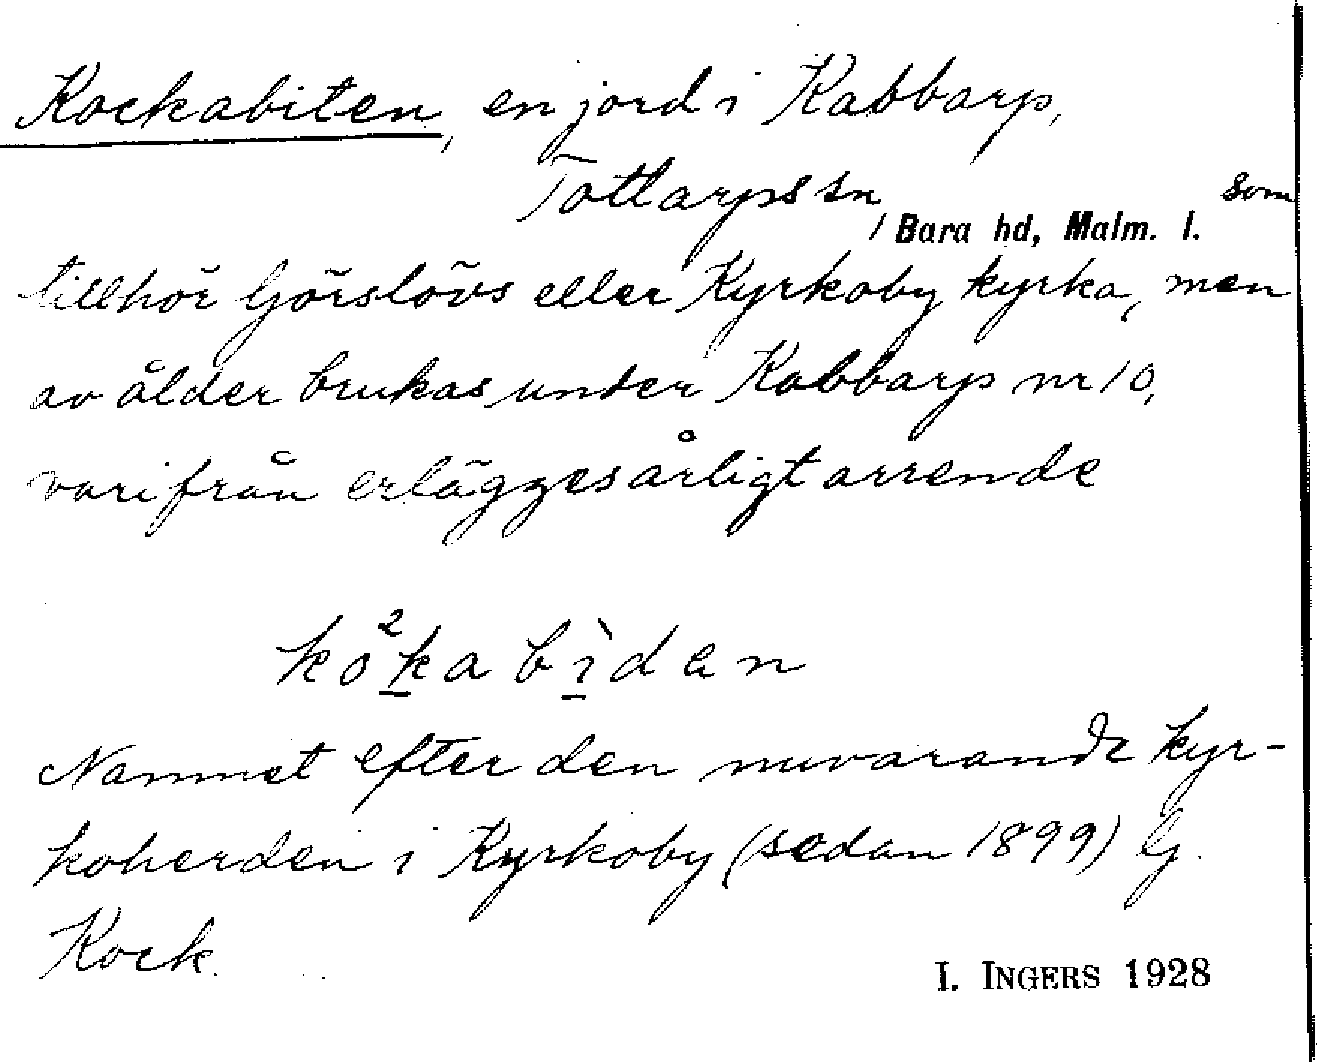 Kockabiten, en jord i Kabbarp,
Tottarps sn, Bara hd, Malm. l. som
tillhör Görslövs eller Kyrkoby kyrka, men
av ålder brukas under Kabbarp nr 10,
varifrån erlägges årligt arrende
kò²kabìdan
Namnet efter den nuvarande kyr-
koherden i Kyrkoby (sedan 1899) G.
Kock.
I. INGERS 1928